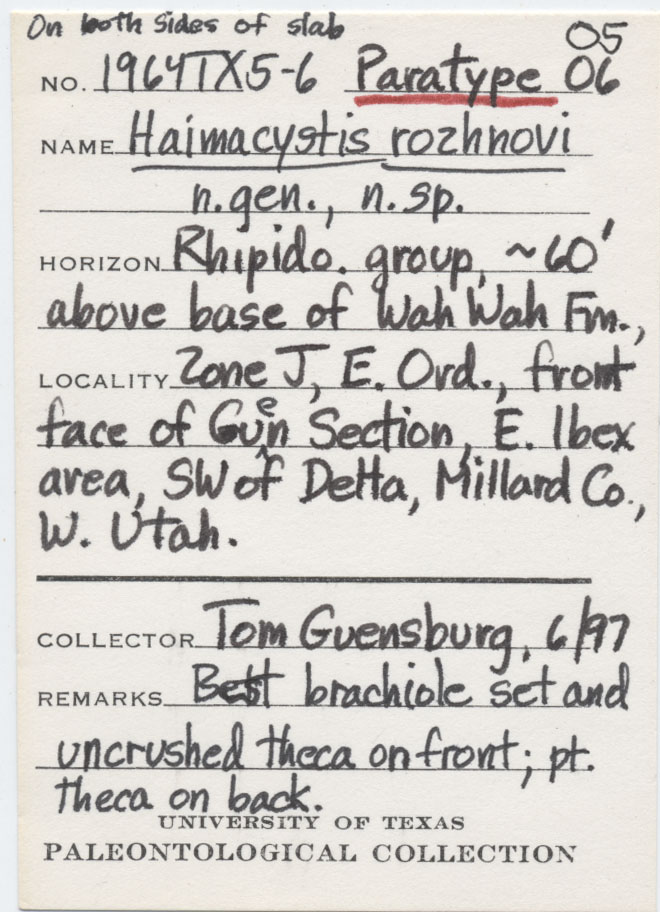 On both sides of slab
05
NO. 1964TX5-6 Paratype 06
NAME Haimacystis rozhnovi
n.gen., n.sp.
HORIZON Rhipido. group, ~60'
above base of Wah Wah Fm.,
LOCALITY Zone J, E. Ord., front
face of Guen Section, E. Ibex
area, SW of Delta, Millard Co.,
W. Utah.
COLLECTOR Tom Guensburg, 6/97
REMARKS Best brachiole set and
uncrushed theca on front; pt.
theca on back.
UNIVERSITY OF TEXAS
PALEONTOLOGICAL COLLECTION